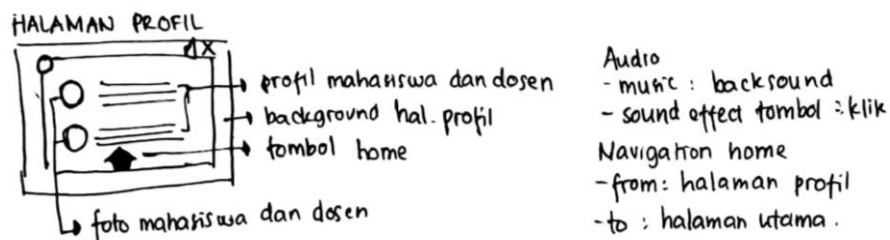 HALAMAN PROFIL
profil mahasiswa dan dosen
background hal. profil
tombol home
foto mahasiswa dan dosen
Audio
- music : backsound
- sound effect tombol : klik
Navigation home
- from : halaman profil
- to : halaman utama.